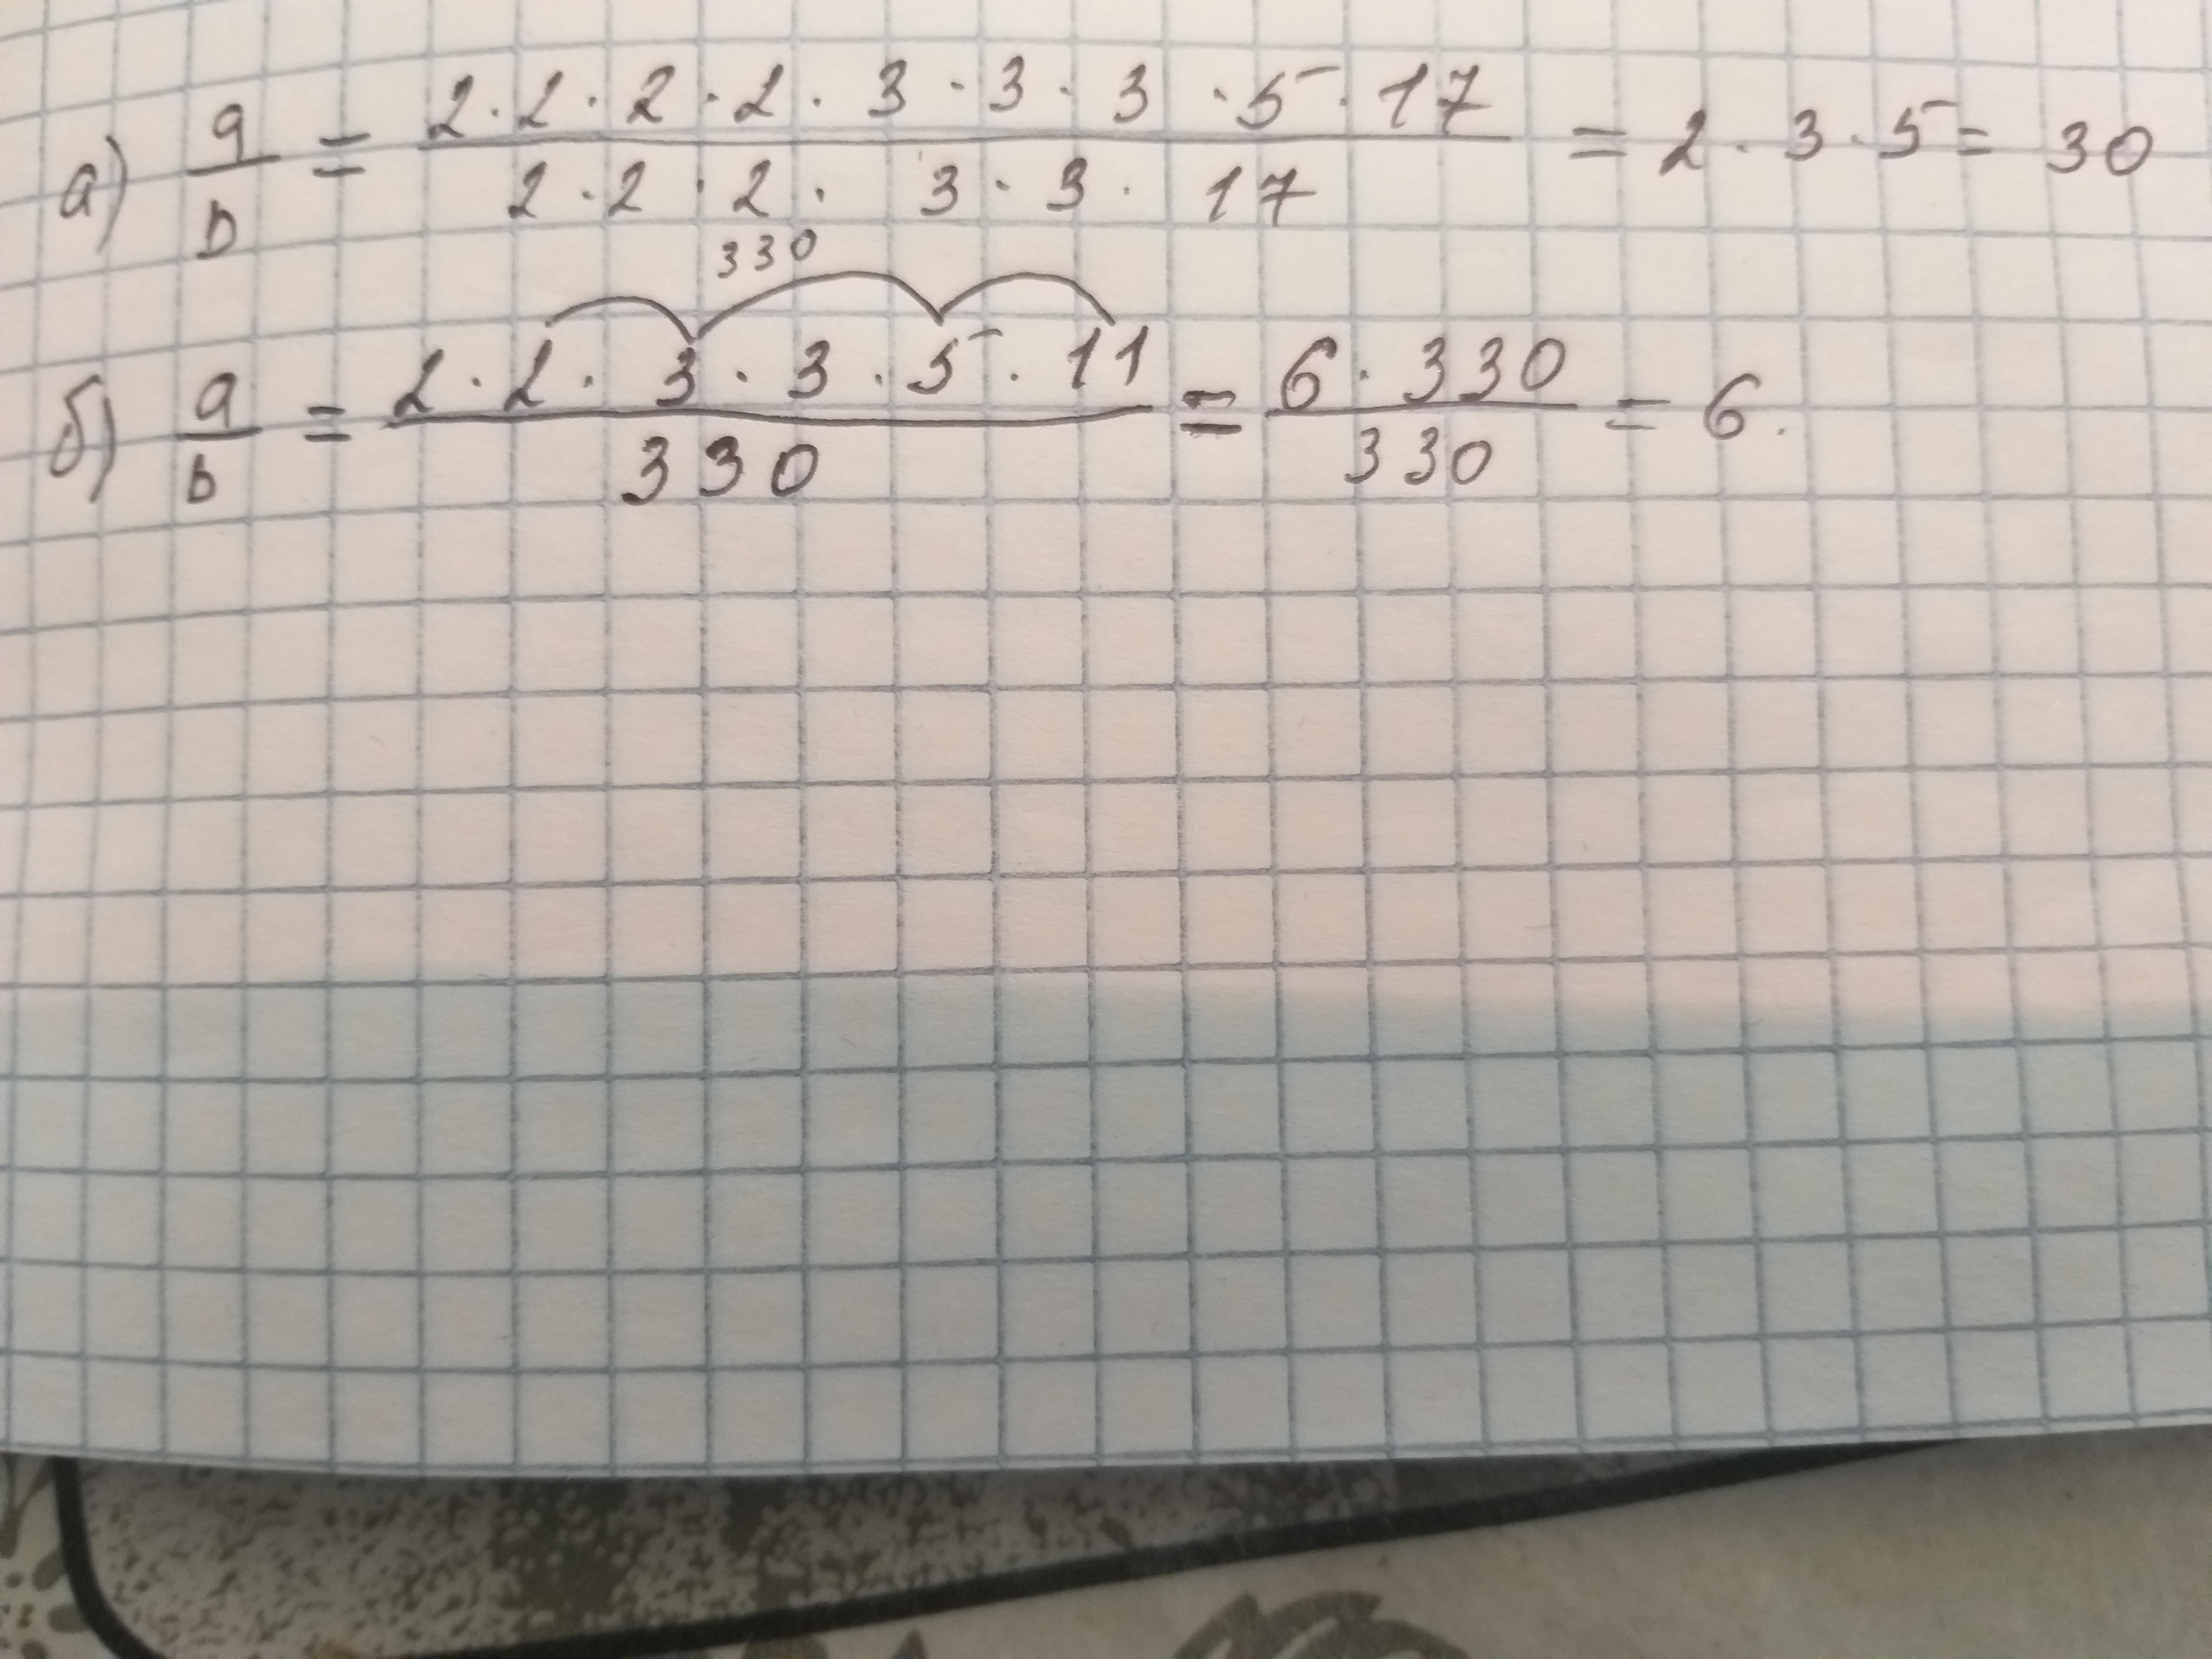 а) a/b = 2·2·2·2·3·3·3·5·17 / 2·2·2·3·3·17 = 2·3·5 = 30
330
б) a/b = 2·2·3·3·5·11 / 330 = 6·330 / 330 = 6.